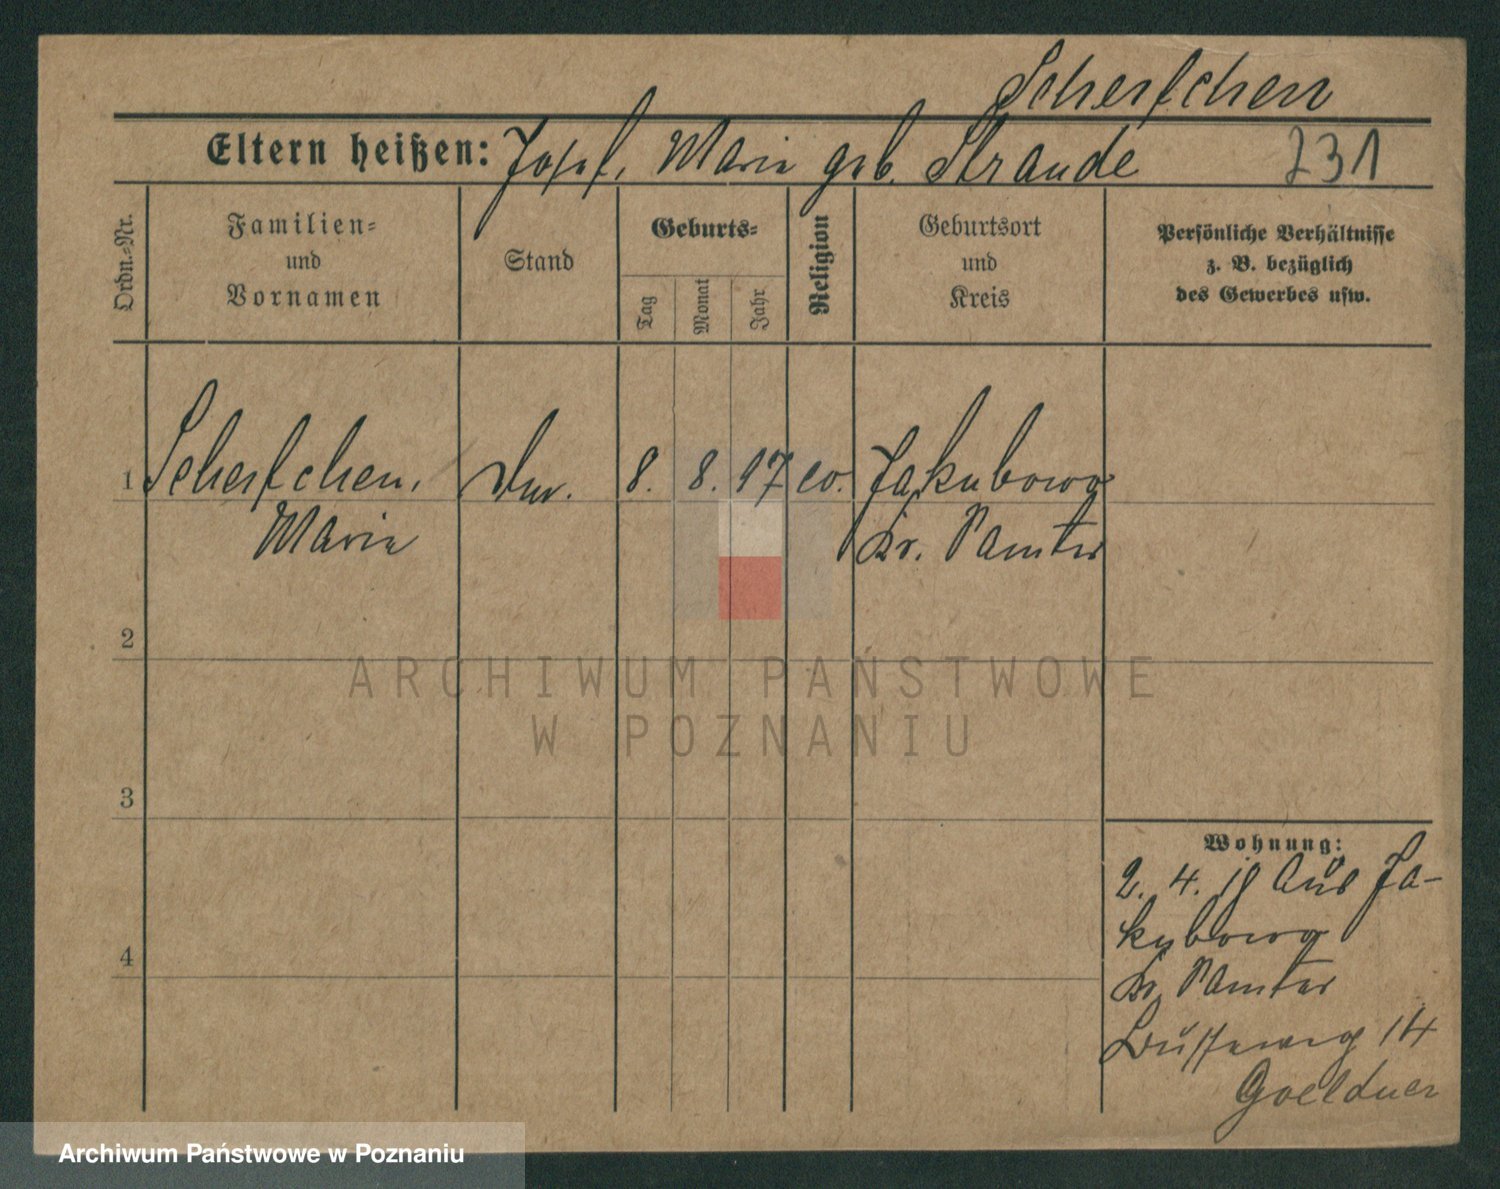 Scherfchen
Eltern heißen: Josef, Marie geb. Straude 231
Ordn.-Nr.
Familien-
und
Vornamen
Stand
Geburts-
Tag
Monat
Jahr
Religion
Geburtsort
und
Kreis
Persönliche Verhältnisse
z. B. bezüglich
des Gewerbes usw.
1 Scherfchen, 8. 8. 97 ev. Jakubowo
Marie Kr. Samter
2
3
4
Wohnung:
2. 4. 19 aus Ja-
kubowo
Kr. Samter
14
Goeldner
ARCHIWUM PAŃSTWOWE
W POZNANIU
Archiwum Państwowe w Poznaniu